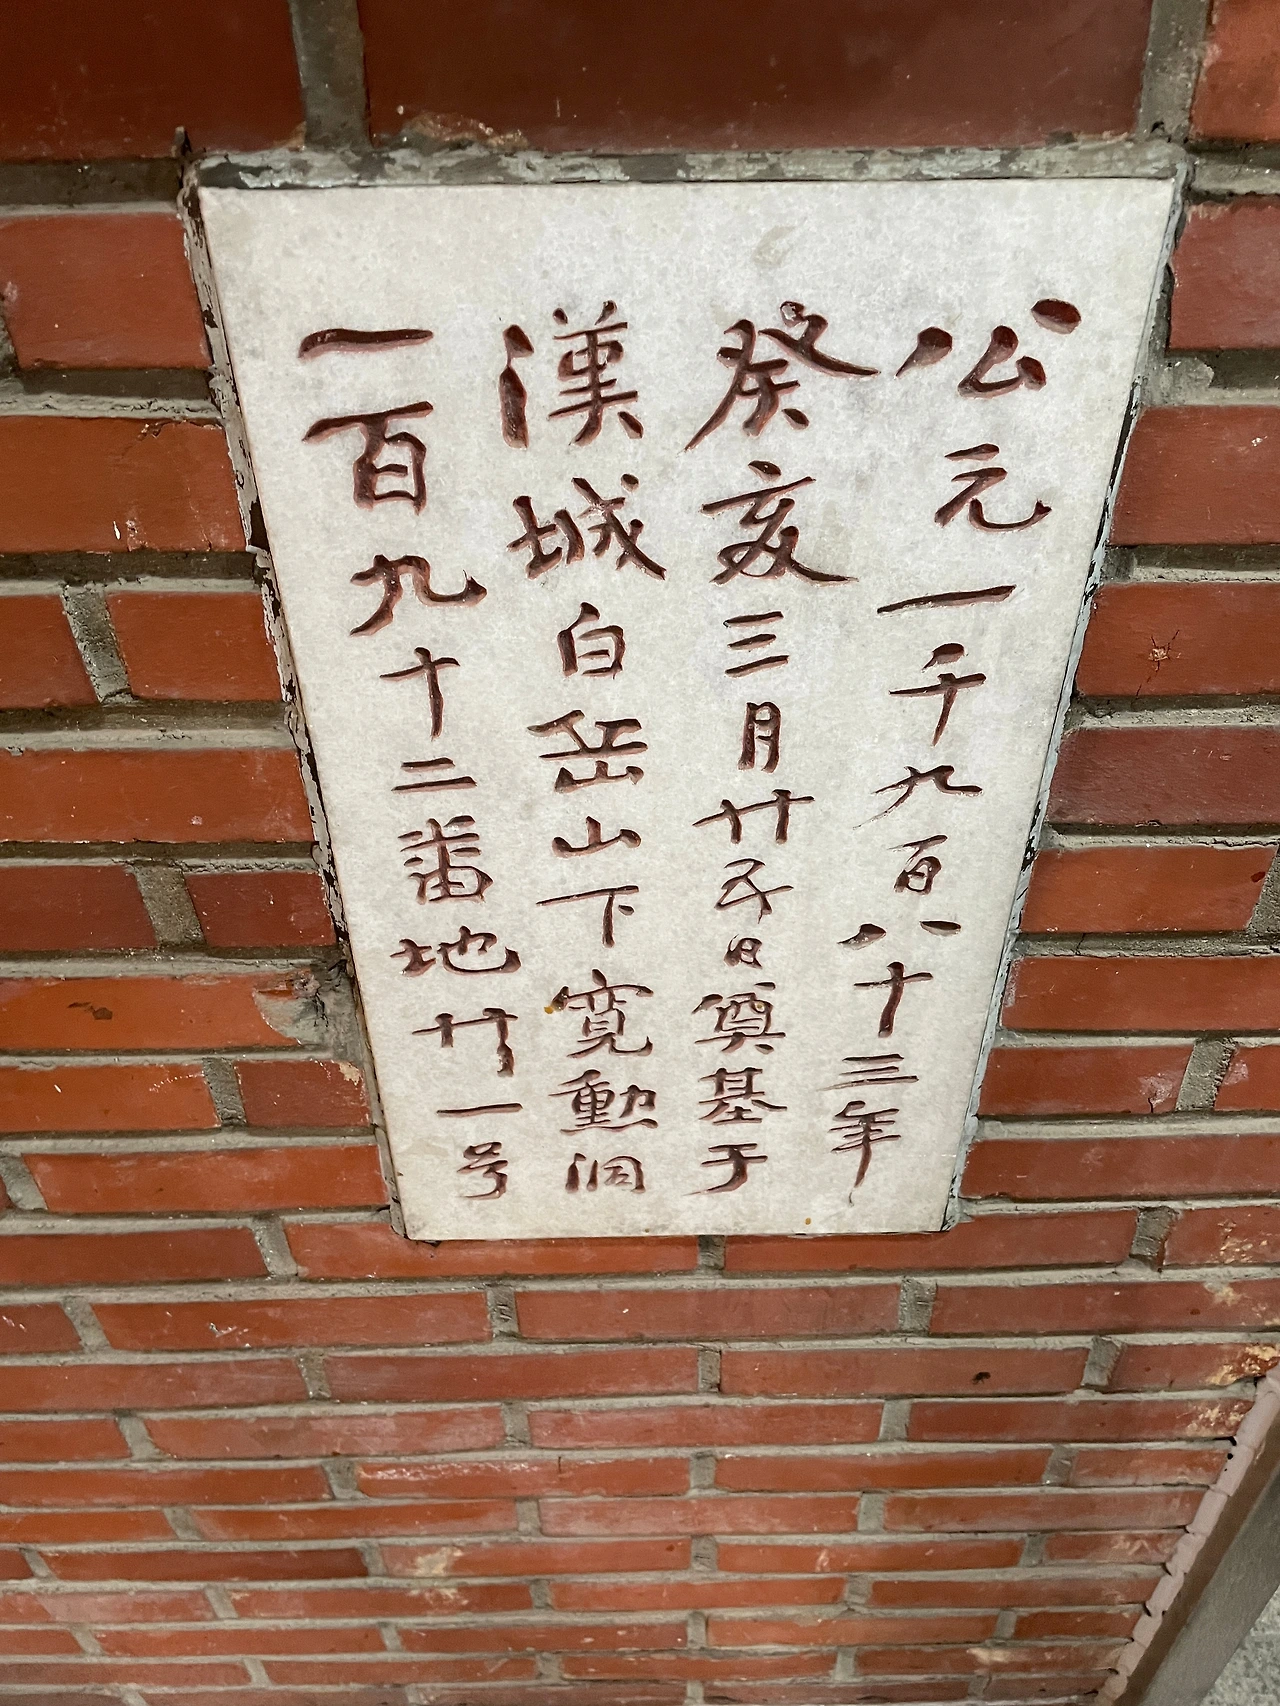 公元一千九百八十三年
癸亥三月廿五日奠基于
漢城白岳山下寬勳洞
一百九十二番地廿一号